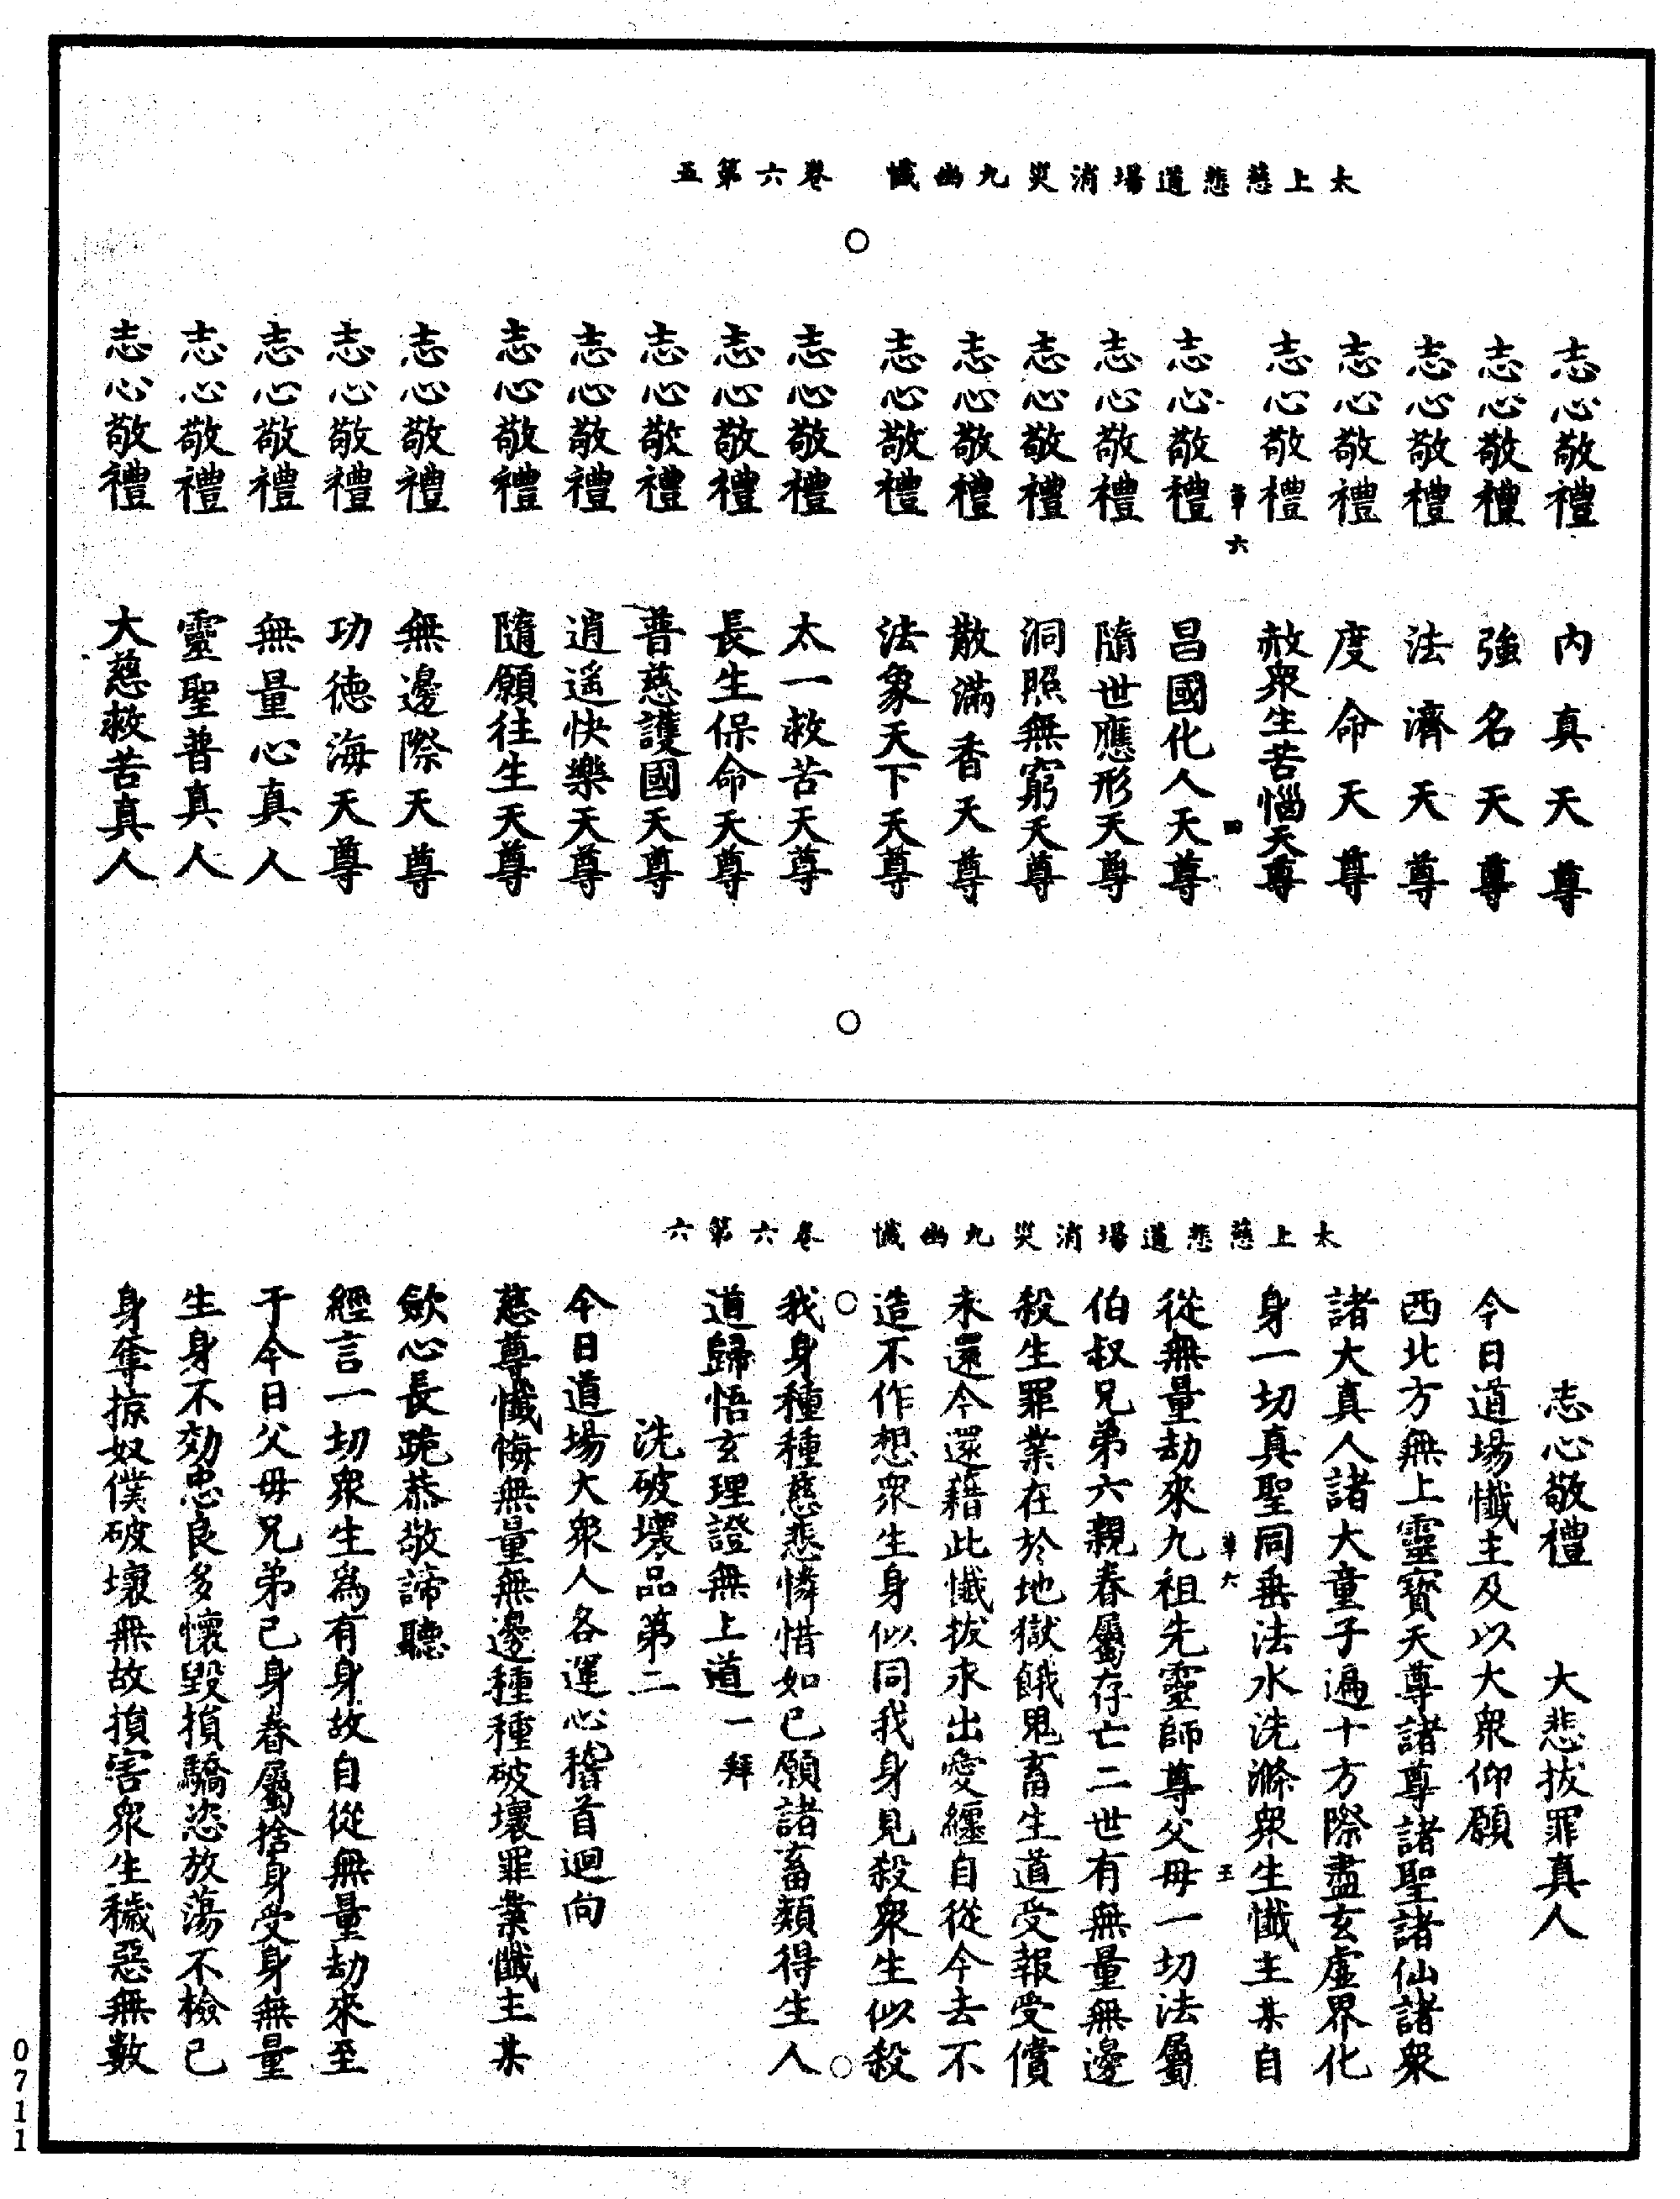 太上慈悲道場消災九幽懺　卷六第五
志心敬禮　內真天尊
志心敬禮　強名天尊
志心敬禮　法濟天尊
志心敬禮　度命天尊
志心敬禮　赦衆生苦惱天尊
章六　四
志心敬禮　昌國化人天尊
志心敬禮　隨世應形天尊
志心敬禮　洞照無窮天尊
志心敬禮　散滿香天尊
志心敬禮　法象天下天尊
志心敬禮　太一救苦天尊
志心敬禮　長生保命天尊
志心敬禮　普慈護國天尊
志心敬禮　逍遥快樂天尊
志心敬禮　隨願往生天尊
志心敬禮　無邊際天尊
志心敬禮　功德海天尊
志心敬禮　無量心真人
志心敬禮　靈聖普真人
志心敬禮　大慈救苦真人
太上慈悲道場消災九幽懺　卷六第六
志心敬禮　大悲拔罪真人
今日道場懺主及以大衆仰願
西北方無上靈寶天尊諸尊諸聖諸仙諸衆
諸大真人諸大童子遍十方際盡玄虛界化
身一切真聖同垂法水洗滌衆生懺主某自
章六　五
從無量劫來九祖先靈師尊父母一切法屬
伯叔兄弟六親眷屬存亡二世有無量無邊
殺生罪業在於地獄餓鬼畜生道受報受償
未還今還藉此懺拔永出愛纏自從今去不
造不作想衆生身似同我身見殺衆生似殺
我身種種慈悲憐惜如己願諸畜類得生人
道歸悟玄理證無上道一拜
洗破壞品第二
今日道場大衆人各運心稽首迴向
慈尊懺悔無量無邊種種破壞罪業懺主某
歛心長跪恭敬諦聽
經言一切衆生爲有身故自從無量劫來至
于今日父母兄弟己身眷屬捨身受身無量
生身不効忠良多懷毀損驕恣放蕩不檢己
身奪掠奴僕破壞無故損害衆生穢惡無數
0711